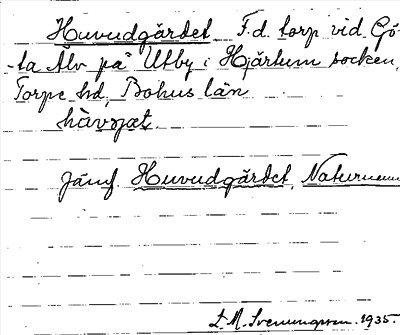 Huvudgärdet. F.d. torp vid Gö-
-ta Älv på Utby i Hjärtum socken,
Torpe hd, Bohus län
hävgæt.
Jämf. Huvudgärdet, Naturnamn
L. M. Svenungsson. 1935.